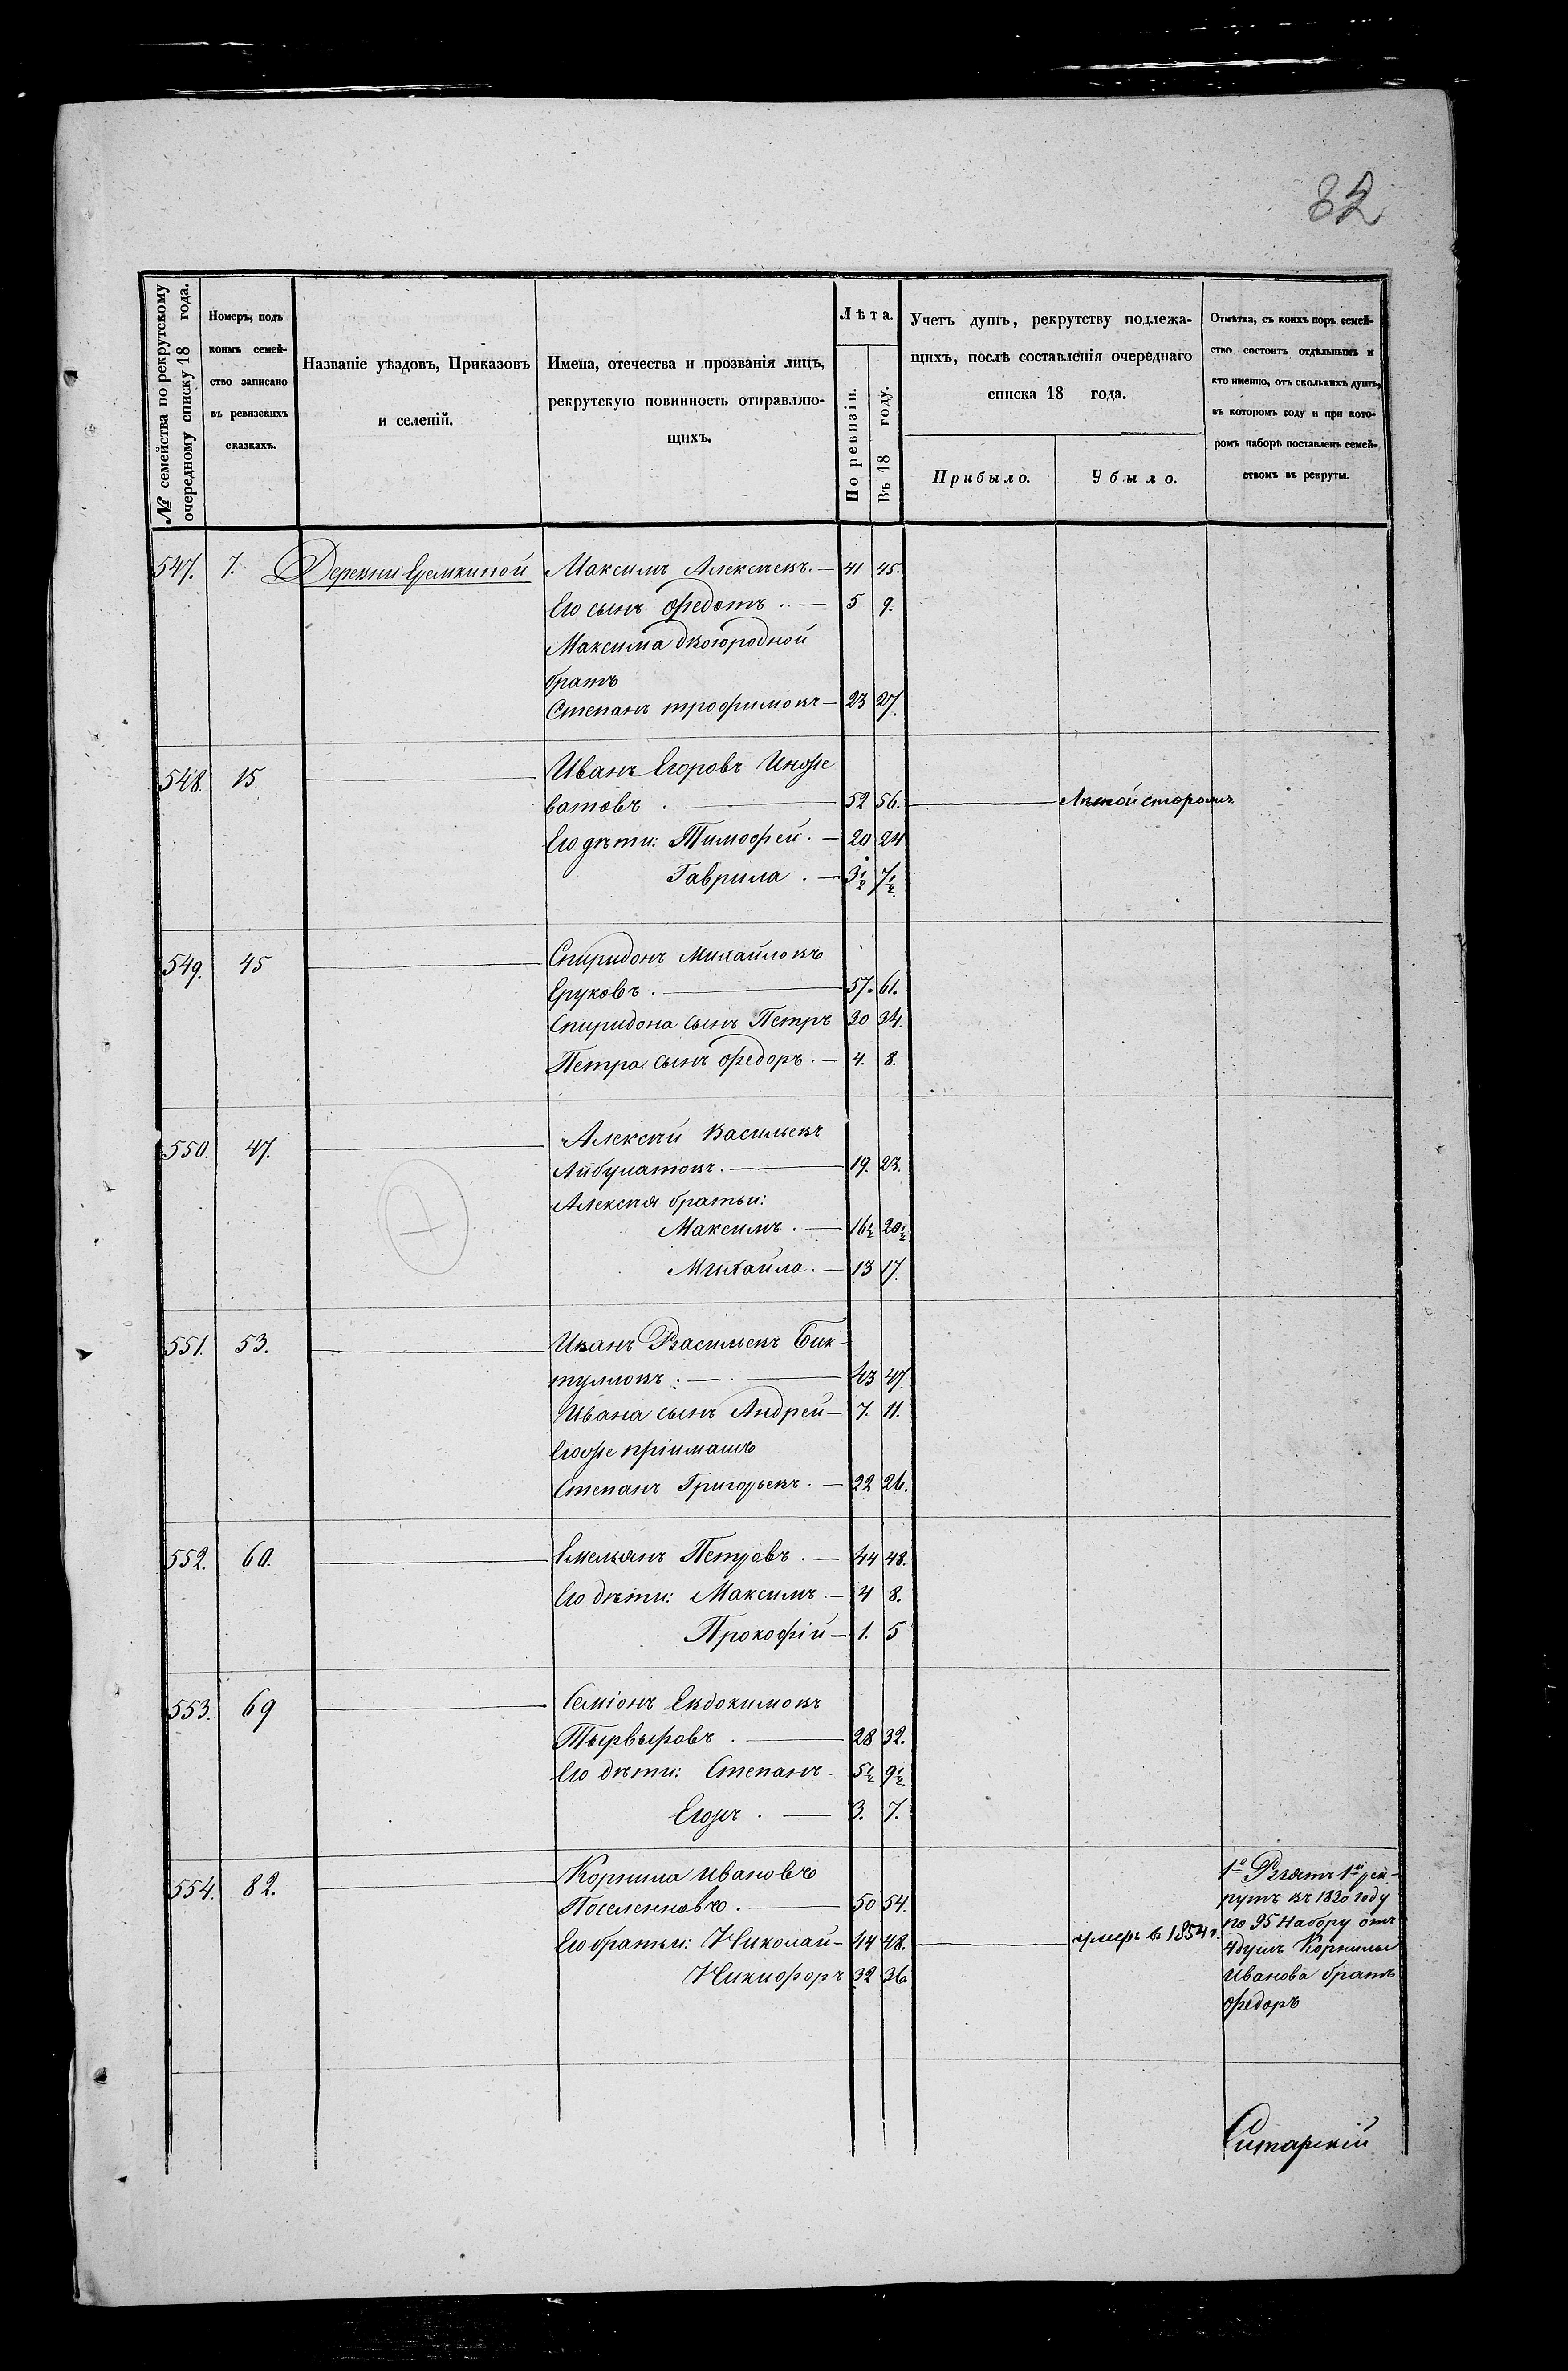 82
№ семейства по рекрутскому очередному списку 18 года.
Номеръ, подъ коимъ семейство записано въ ревизскихъ сказкахъ.
Названіе уѣздовъ, Приказовъ
и селеній.
Имена, отечества и прозванія лицъ,
рекрутскую повинность отправляю-
щихъ.
Лѣта.
По ревизіи.
Въ 18 году.
Учетъ душъ, рекрутству подлежа-
щихъ, послѣ составленія очереднаго
списка 18 года.
Прибыло.
Убыло.
Отмѣтка, съ коихъ поръ семей-
ство состоитъ отдѣльнымъ и
кто именно, отъ сколькихъ душъ,
въ которомъ году и при кото-
ромъ наборѣ поставленъ семей-
ствомъ въ рекруты.
547. 7. Деревни Еремкиной Максимъ Алексѣевъ. 41 45.
Его сынъ Федотъ 5 9.
Максима двоюродной
братъ
Степанъ Трофимовъ 23 27.
548. 15 Иванъ Егоровъ Иноже
ватовъ 52 56. Лѣсной сторожъ
Его дѣти: Тимофей. 20 24
Гаврила. 3½ 7½
549. 45 Спиридонъ Михайловъ
Еруковъ. 57. 61.
Спиридона сынъ Петръ 30 34.
Петра сынъ Федоръ. 4. 8.
550. 47. Алексѣй Васильевъ
Айбулатовъ. 19. 23.
Алексѣя братьи:
Максимъ. 16½ 20½
Михайла. 13 17.
551. 53. Иванъ Васильевъ Бик-
тулловъ: 43 47.
Ивана сынъ Андрей 7. 11.
Егоже пріимашъ
Степанъ Григорьевъ. 22 26.
552. 60. Емельянъ Петровъ. 44 48.
Его дѣти: Максимъ. 4 8.
Прокофій 1. 5
553. 69 Семіонъ Евдокимовъ
28 32.
Его дѣти: Степанъ 5½ 9½
Егоръ. 3. 7.
554. 82. Корнила Ивановъ
Поселенновъ. 50 54.
Его братьи: Николай 44 48. умеръ в 1854 г.
Никифоръ 32 36
1е Взятъ 1й рек-
рутъ въ 1830 году
по 95 Набору отъ
4 душъ Корнилы
Иванова братъ
Федоръ